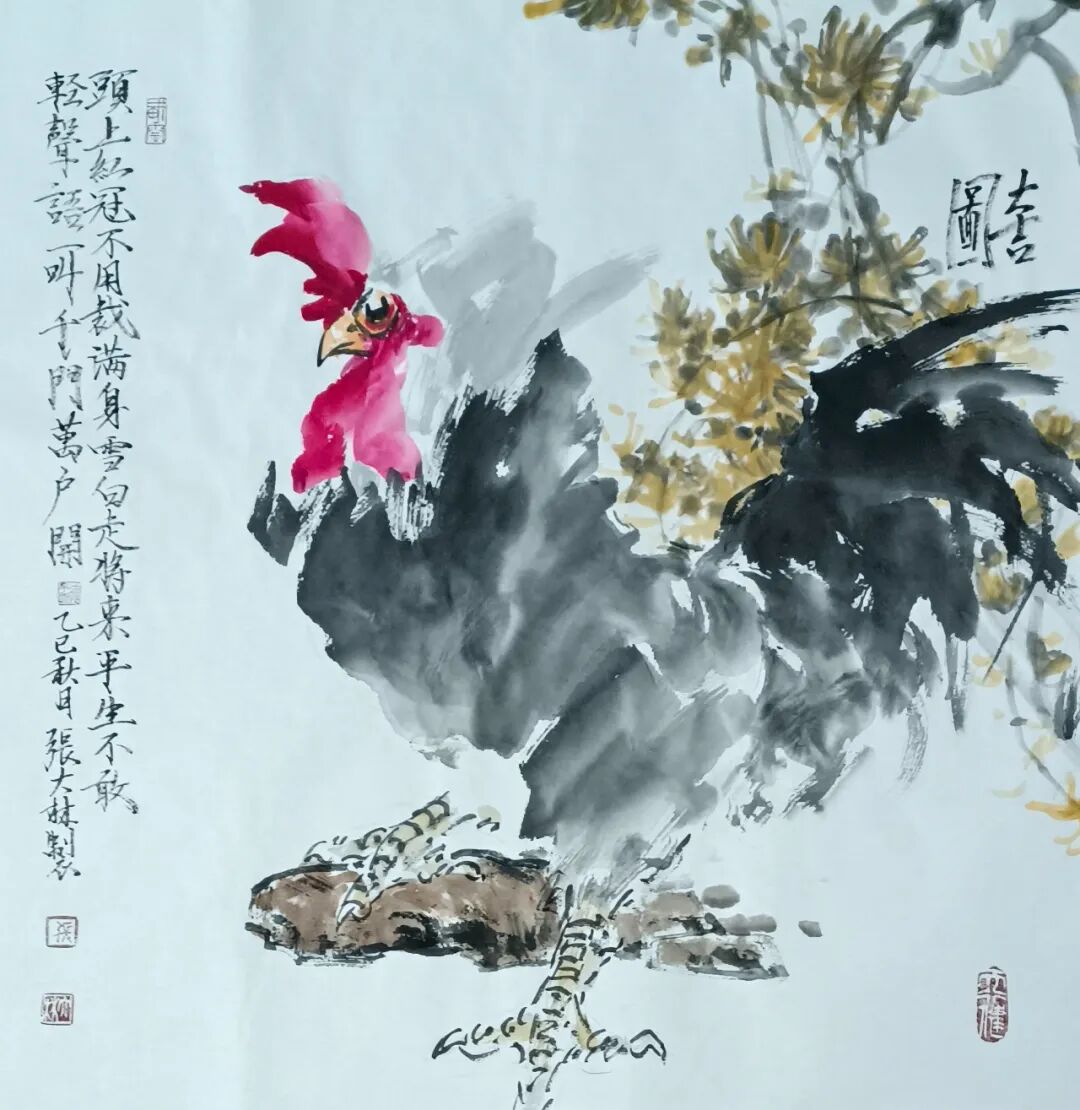 大吉
圖
頭上紅冠不用裁满身雪白走将来平生不敢
軽聲語一叫千門萬户開
乙巳秋月張大林製
張